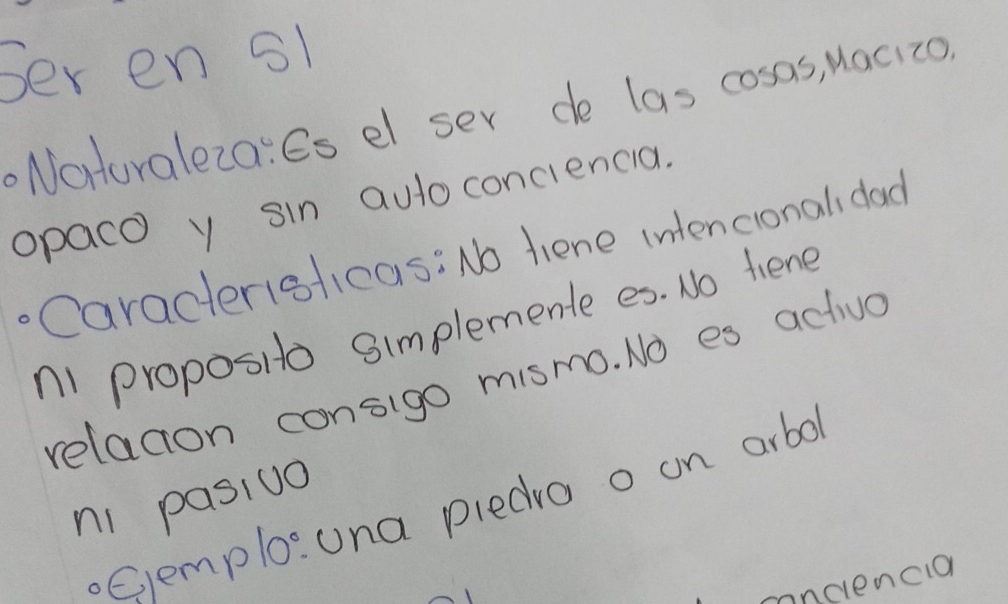 Ser en si
•Naturaleza: Es el ser de las cosas, Macizo,
opaco y sin auto conciencia.
•Caracteristicas: No tiene intencionalidad
ni proposito simplemente es. No tiene
relacion consigo mismo. No es activo
ni pasivo
•Ejemplo: una piedra o un arbol
conciencia